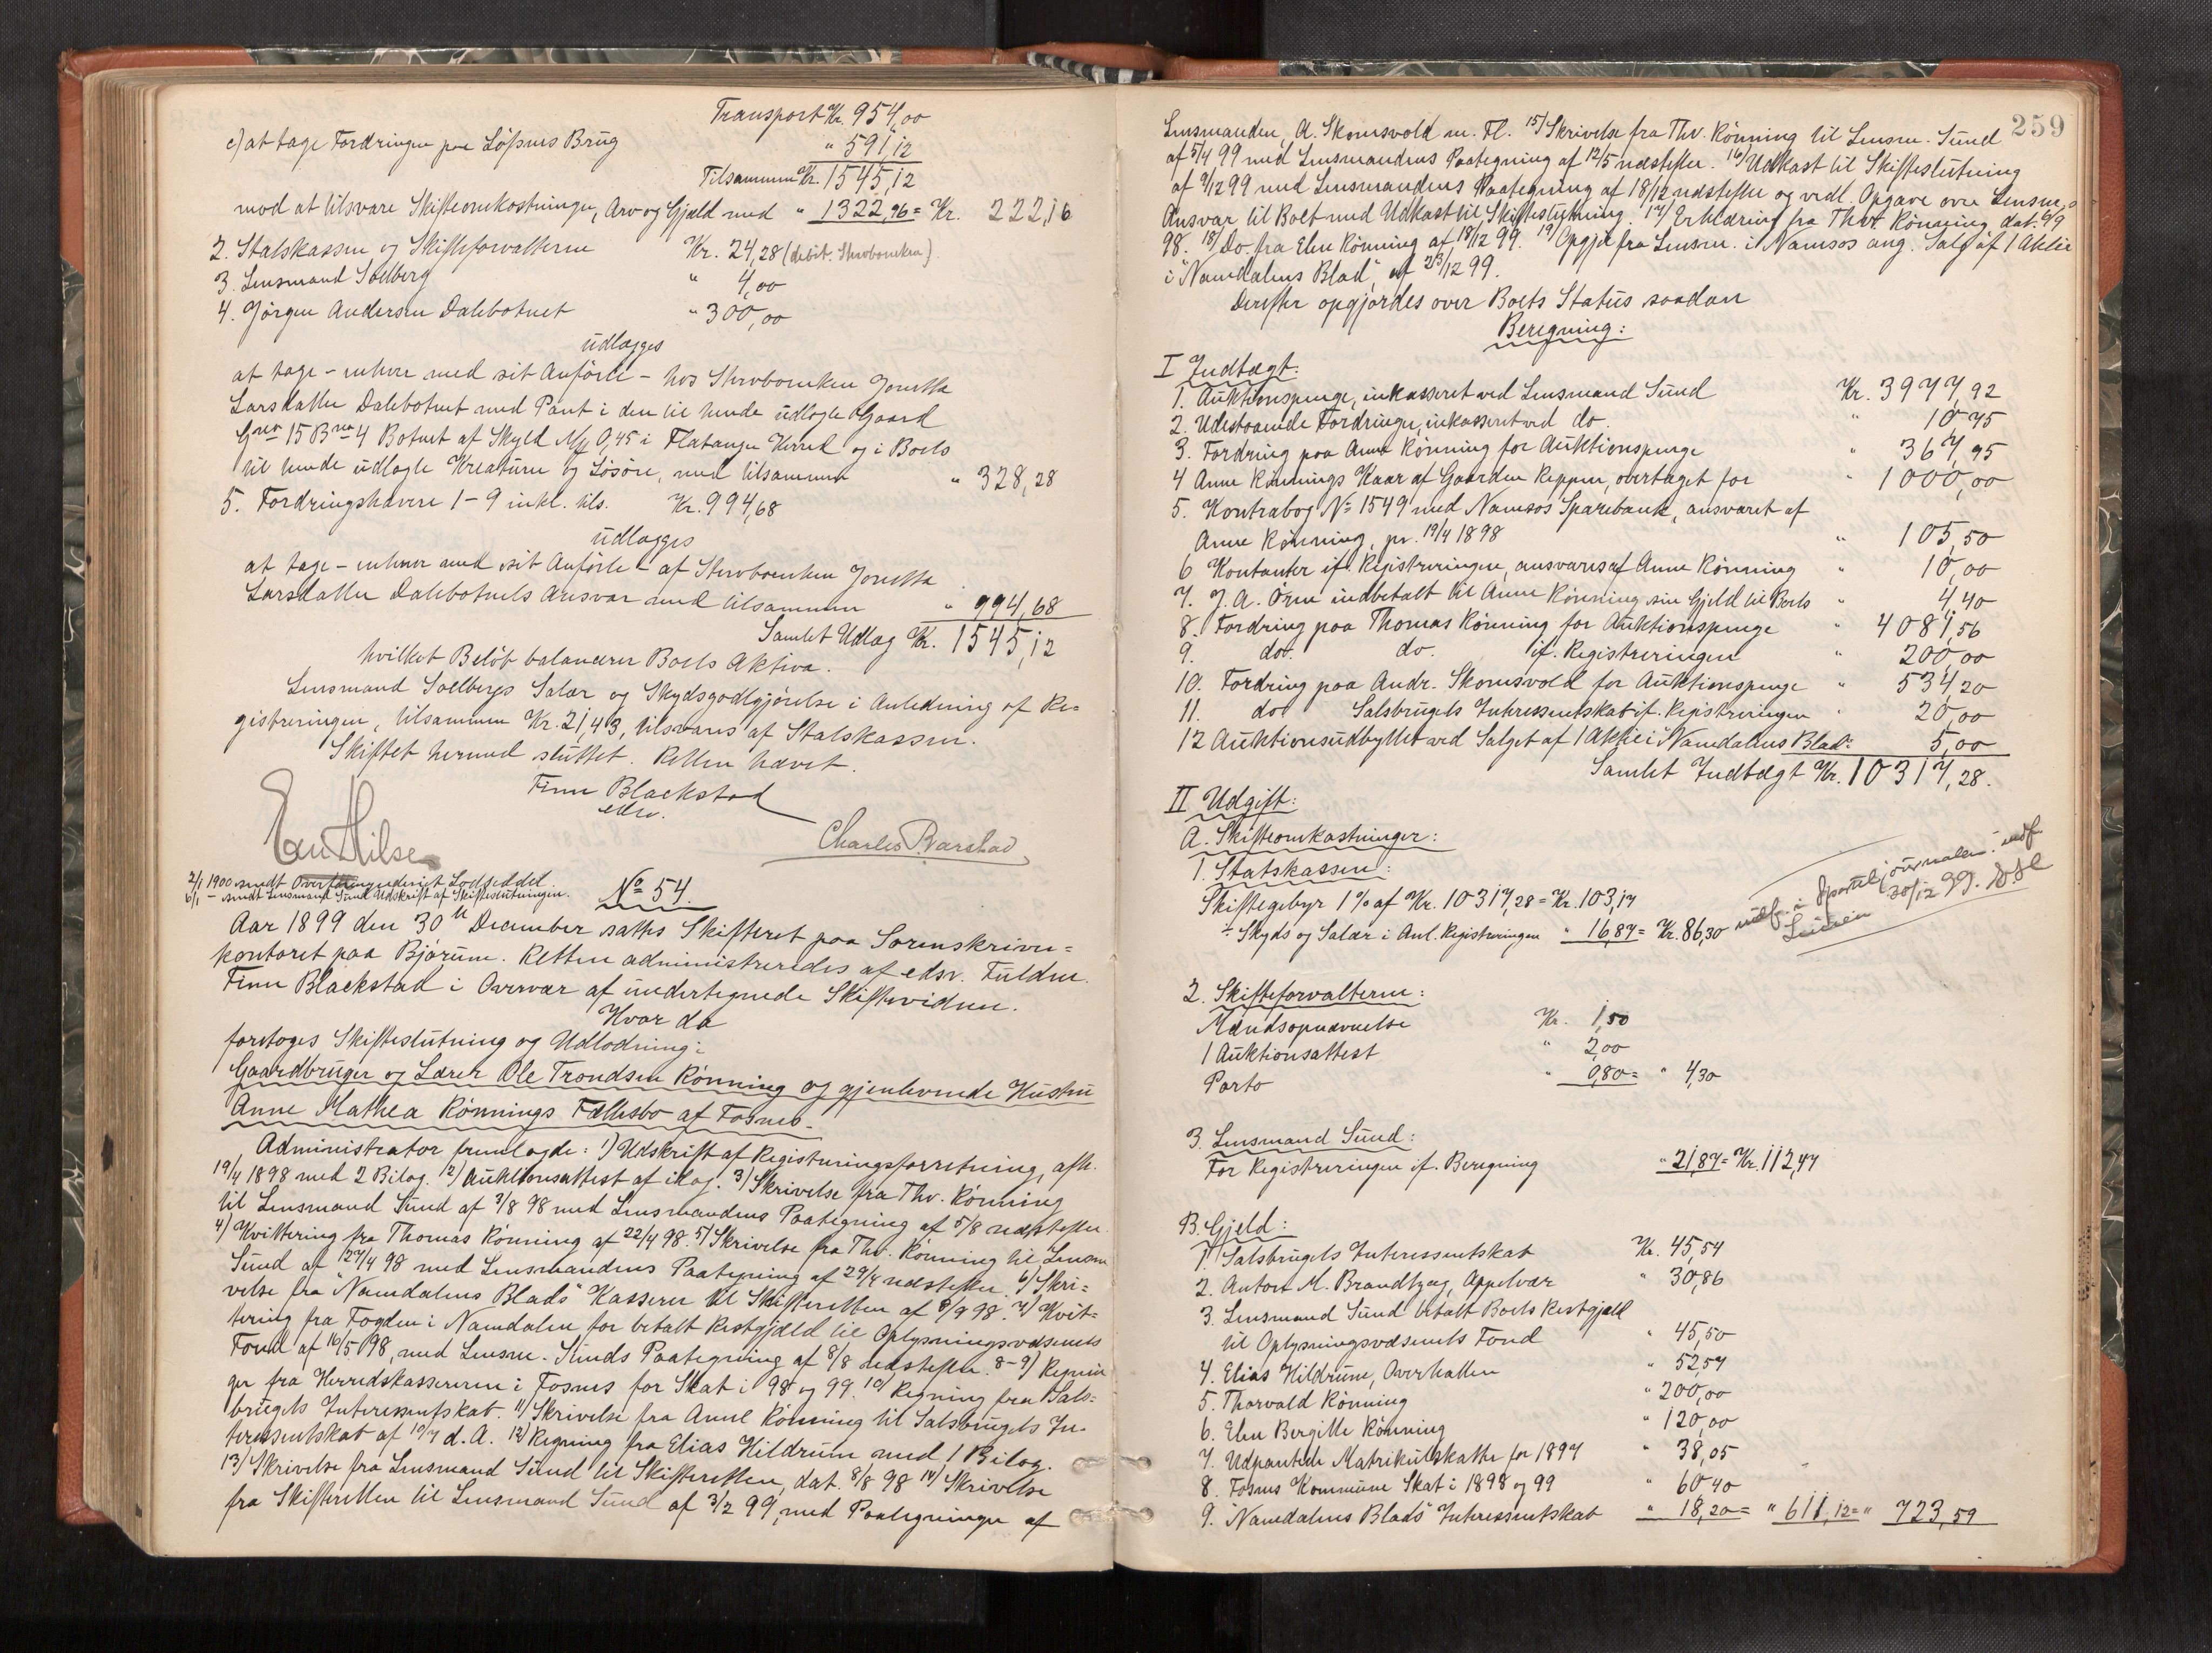 Transport Kr. 954,00
c) at tage Fordringen paa Löfsnes Brug " 591,12
Tilsammen Kr. 1545,12
mod at tilsvare Skifteomkostninger, Arv og Gjæld med " 1322,96 = Kr. 222,16
2. Statskassen og Skifteforvalteren Kr. 24,28 (debit. Stervboenken).
3. Lensmand Soelberg " 4,00
4. Jörgen Andersen Dalebotnet " 300,00
udlægges
at tage - enhver med sit Anförte - hos Stervboenken Jonetta
Larsdatter Dalebotnet med Pant i den til hende udlagte Gaard
Gno 15 Bno 4 Botnet af Skyld My 0,45 i Flatanger Herred og i Boets
til hende udlagte Kreaturer og Lösöre, med tilsammen " 328,28
5. Fordringshavere 1-9 inkl. tils. Kr. 994,68
udlægges
at tage - enhver med sit Anförte - af Stervboenken Jonetta
Larsdatter Dalebotnets Ansvar med tilsammen " 994,68
Samlet Udlæg Kr. 1545,12
hvilket Belöb balancerer Boets Aktiva.
Lensmand Soelbergs Salær og Skydsgodtgjörelse i Anledning af Re=
gistreringen, tilsammen Kr. 21,43, tilsvares af Statskassen.
Skiftet hermed sluttet. Retten hævet.
Finn Blackstad
edsv.
Charles Barstad
2/1 1900 sendt Overformynderiet Lodseddel.
6/1 - sendt Lensmand Sund Udskrift af Skifteslutningen.
No 54.
Aar 1899 den 30te December sattes Skifteret paa Sorenskriver=
kontoret paa Bjørum. Retten administreredes af edsv. Fuldm.
Finn Blackstad i Overvær af undertegnede Skiftevidner.
Hvor da
foretoges Skifteslutning og Udlodning i
Gaardbruger og Lærer Ole Trondsen Rönning og gjenlevende Hustru
Anne Mathea Rönnings Fællesbo af Fosnes.
Administrator fremlagde: 1) Udskrift af Registreringsforretning, afh.
19/4 1898 med 2 Bilag. 2) Auktionsattest af i Dag. 3) Skrivelse fra Thv. Rönning
til Lensmand Sund af 3/8 98 med Lensmandens Paategning af 5/8 næstefter.
4) Kvittering fra Thomas Rönning af 22/4 98. 5) Skrivelse fra Thv. Rönning til Lensm.
Sund af 27/4 98 med Lensmandens Paategning af 29/4 næstefter. 6) Skri=
velse fra "Namdalens Blads" Kasserer til Skifteretten af 8/9 98. 7) Kvit=
tering fra Fogden i Namdalen for betalt Restgjæld til Oplysningsvæsenets
Fond af 16/5 98, med Lensm. Sunds Paategning af 8/8 næstefter. 8-9) Regnin
ger fra Herredskassereren i Fosnes for Skat i 98 og 99. 10) Regning fra Sals=
brugets Interessentskab. 11) Skrivelse fra Anne Rönning til Salsbrugets In=
teressentskab af 10/7 d. A. 12) Regning fra Elias Hildrum med 1 Bilag.
13) Skrivelse fra Lensmand Sund til Skifteretten, dat. 8/8 98 14) Skrivelse
fra Skifteretten til Lensmand Sund af 3/2 99, med Paategninger af
259
Lensmanden, A. Skomsvold m. Fl. 15) Skrivelse fra Thv. Rönning til Lensm. Sund
af 5/4 99 med Lensmandens Paategning af 12/5 næstefter. 16) Udkast til Skifteslutning
af 9/12 99 med Lensmandens Paategning af 18/12 næstefter og vedl. Opgave over Lensm.s
Ansvar til Boet med Udkast til Skifteslutning. 17) Erklæring fra Thv. Rönning dat. 6/9
98. 18) Do. fra Elen Rönning af 18/12 99. 19) Opgjör fra Lensm. i Namsos ang. Salg af 1 Aktie
i "Namdalens Blad", af 23/12 99.
Derefter opgjordes over Boets Status saadan
Beregning:
I Indtægt:
1. Auktionspenge, inkasseret ved Lensmand Sund Kr. 3977,92
2. Udestaaende Fordringer, inkasseret ved do. " 10,75
3. Fordring paa Anne Rönning for Auktionspenge " 367,95
4 Anne Rönnings Kaar af Gaarden Reppen, overtaget for " 1000,00
5. Kontrabog No 1549 med Namsos Sparebank, ansvaret af
Anne Rönning, pr. 19/4 1898 " 105,50
6 Kontanter if. Registreringen, ansvares af Anne Rönning " 10,00
7. J. A. Örm indbetalt til Anne Rönning sin Gjeld til Boets " 4,40
8. Fordring paa Thomas Rönning for Auktionspenge " 4081,56
9. do. do. if. Registreringen " 200,00
10. Fordring paa Andr. Skomsvold for Auktionspenge " 534,20
11. do Salsbrugets Interessentskab if. Registreringen " 20,00
12 Auktionsudbyttet ved Salget af 1 Aktie i "Namdalens Blad": 5,00
Samlet Indtægt Kr. 10317,28.
II Udgift:
A. Skifteomkostninger:
1. Statskassen:
Skiftegebyr 1% af Kr. 10317,28 = Kr. 103,17
÷ Skyds og Salær i Anl. Registreringen " 16,87 = Kr. 86,30
indf. i Sporteljournalen indf.
30/12 99.
2. Skifteforvalteren:
Mandsopnævnelse Kr. 1,50
1 Auktionsattest " 2,00
Porto " 0,80 = " 4,30
3. Lensmand Sund:
For Registreringen if. Beregning " 21,87 = Kr. 112,47
B. Gjeld:
1. Salsbrugets Interessentskab Kr. 45,54
2. Anton M. Brandtzæg, Appelvær " 30,86
3. Lensmand Sund betalt Boets Restgjæld
til Oplysningsvæsenets Fond " 45,50
4. Elias Hildrum, Overhallen " 52,57
5. Thorvald Rönning " 200,00
6. Elen Bergitte Rönning " 120,00
7. Udpantede Matrikulskatte for 1897 " 38,05
8. Fosnes Kommune Skat i 1898 og 99 " 60,40
9. "Namdalens Blads" Interessentskab " 18,20 = " 611,12 = " 723,59